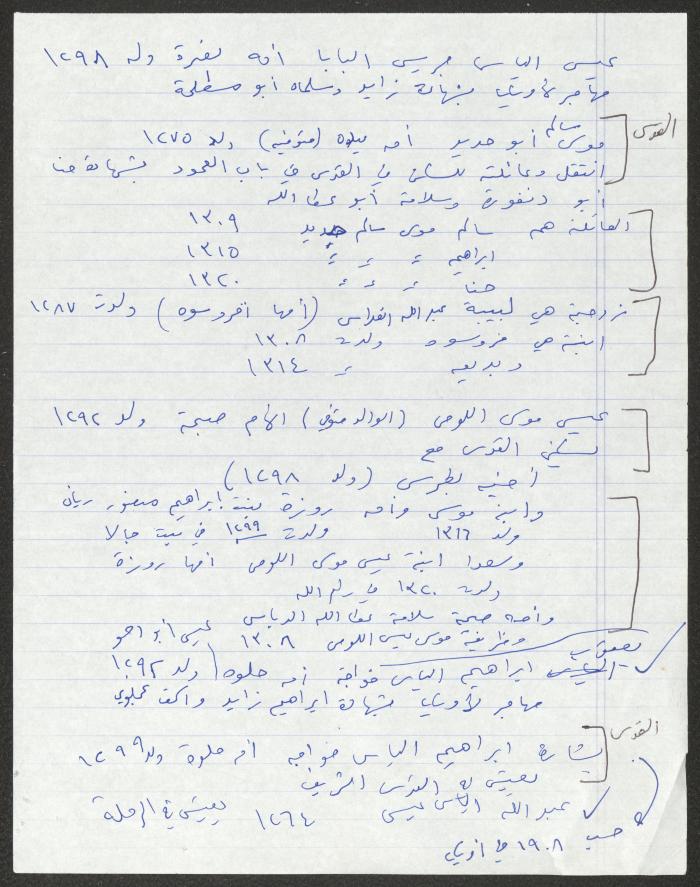 عيسى الياس جريس البابا امه نصرة ولد ١٢٩٨
مهاجر لأوروبا بشهادة زايد وسلمان أبو مصلحة
القدس
موسى سالم أبو حديد امه ميلاده (متوفيه) ولد ١٢٧٥
انتقل وعائلته للسكن في القدس في باب العمود بشهادة حنا
أبو دنفورة وسلامة أبو عطا الله
العائلة هم سالم موسى سالم حديد ١٣٠٩
ابراهيم " " " ١٣١٥
حنا " " " ١٣٢٠
زوجة هي لبيبة عبدالله (أمها افروسوه) ولدت ١٢٨٧
ابنة هي فروسوه ولدت ١٣٠٨
وبديعه " ١٣١٤
عيسى موسى اللوصي (الوالد متوفي) الام صبحة ولد ١٢٩٢
يسكن القدس مع
أخيه بطرس (ولد ١٢٩٨)
وابنه موسى وامه روزة بنت ابراهيم منصور ريان
ولد ١٣١٦ ولدت ١٢٩٩ في بيت جالا
وسعدا ابنة عيسى موسى اللوصي امها روزة
ولدت ١٣٢٠ في رام الله
وامه صبحة سلامة عطا الله الدباس
وظريفة موسى عيسى اللوصي ١٣٠٨ عيسى أبو
يعقوب ابراهيم الياس خواجه امه حلوه ولد ١٢٩٢
مهاجر لأوروبا بشهادة ابراهيم زايد و
القدس
بشارة ابراهيم الياس خواجه امه حلوة ولد ١٢٩٩
يعيش في القدس الشريف
عبد الله الياس عيسى ١٢٦٤ يعيش في الرملة
١٩٠٨